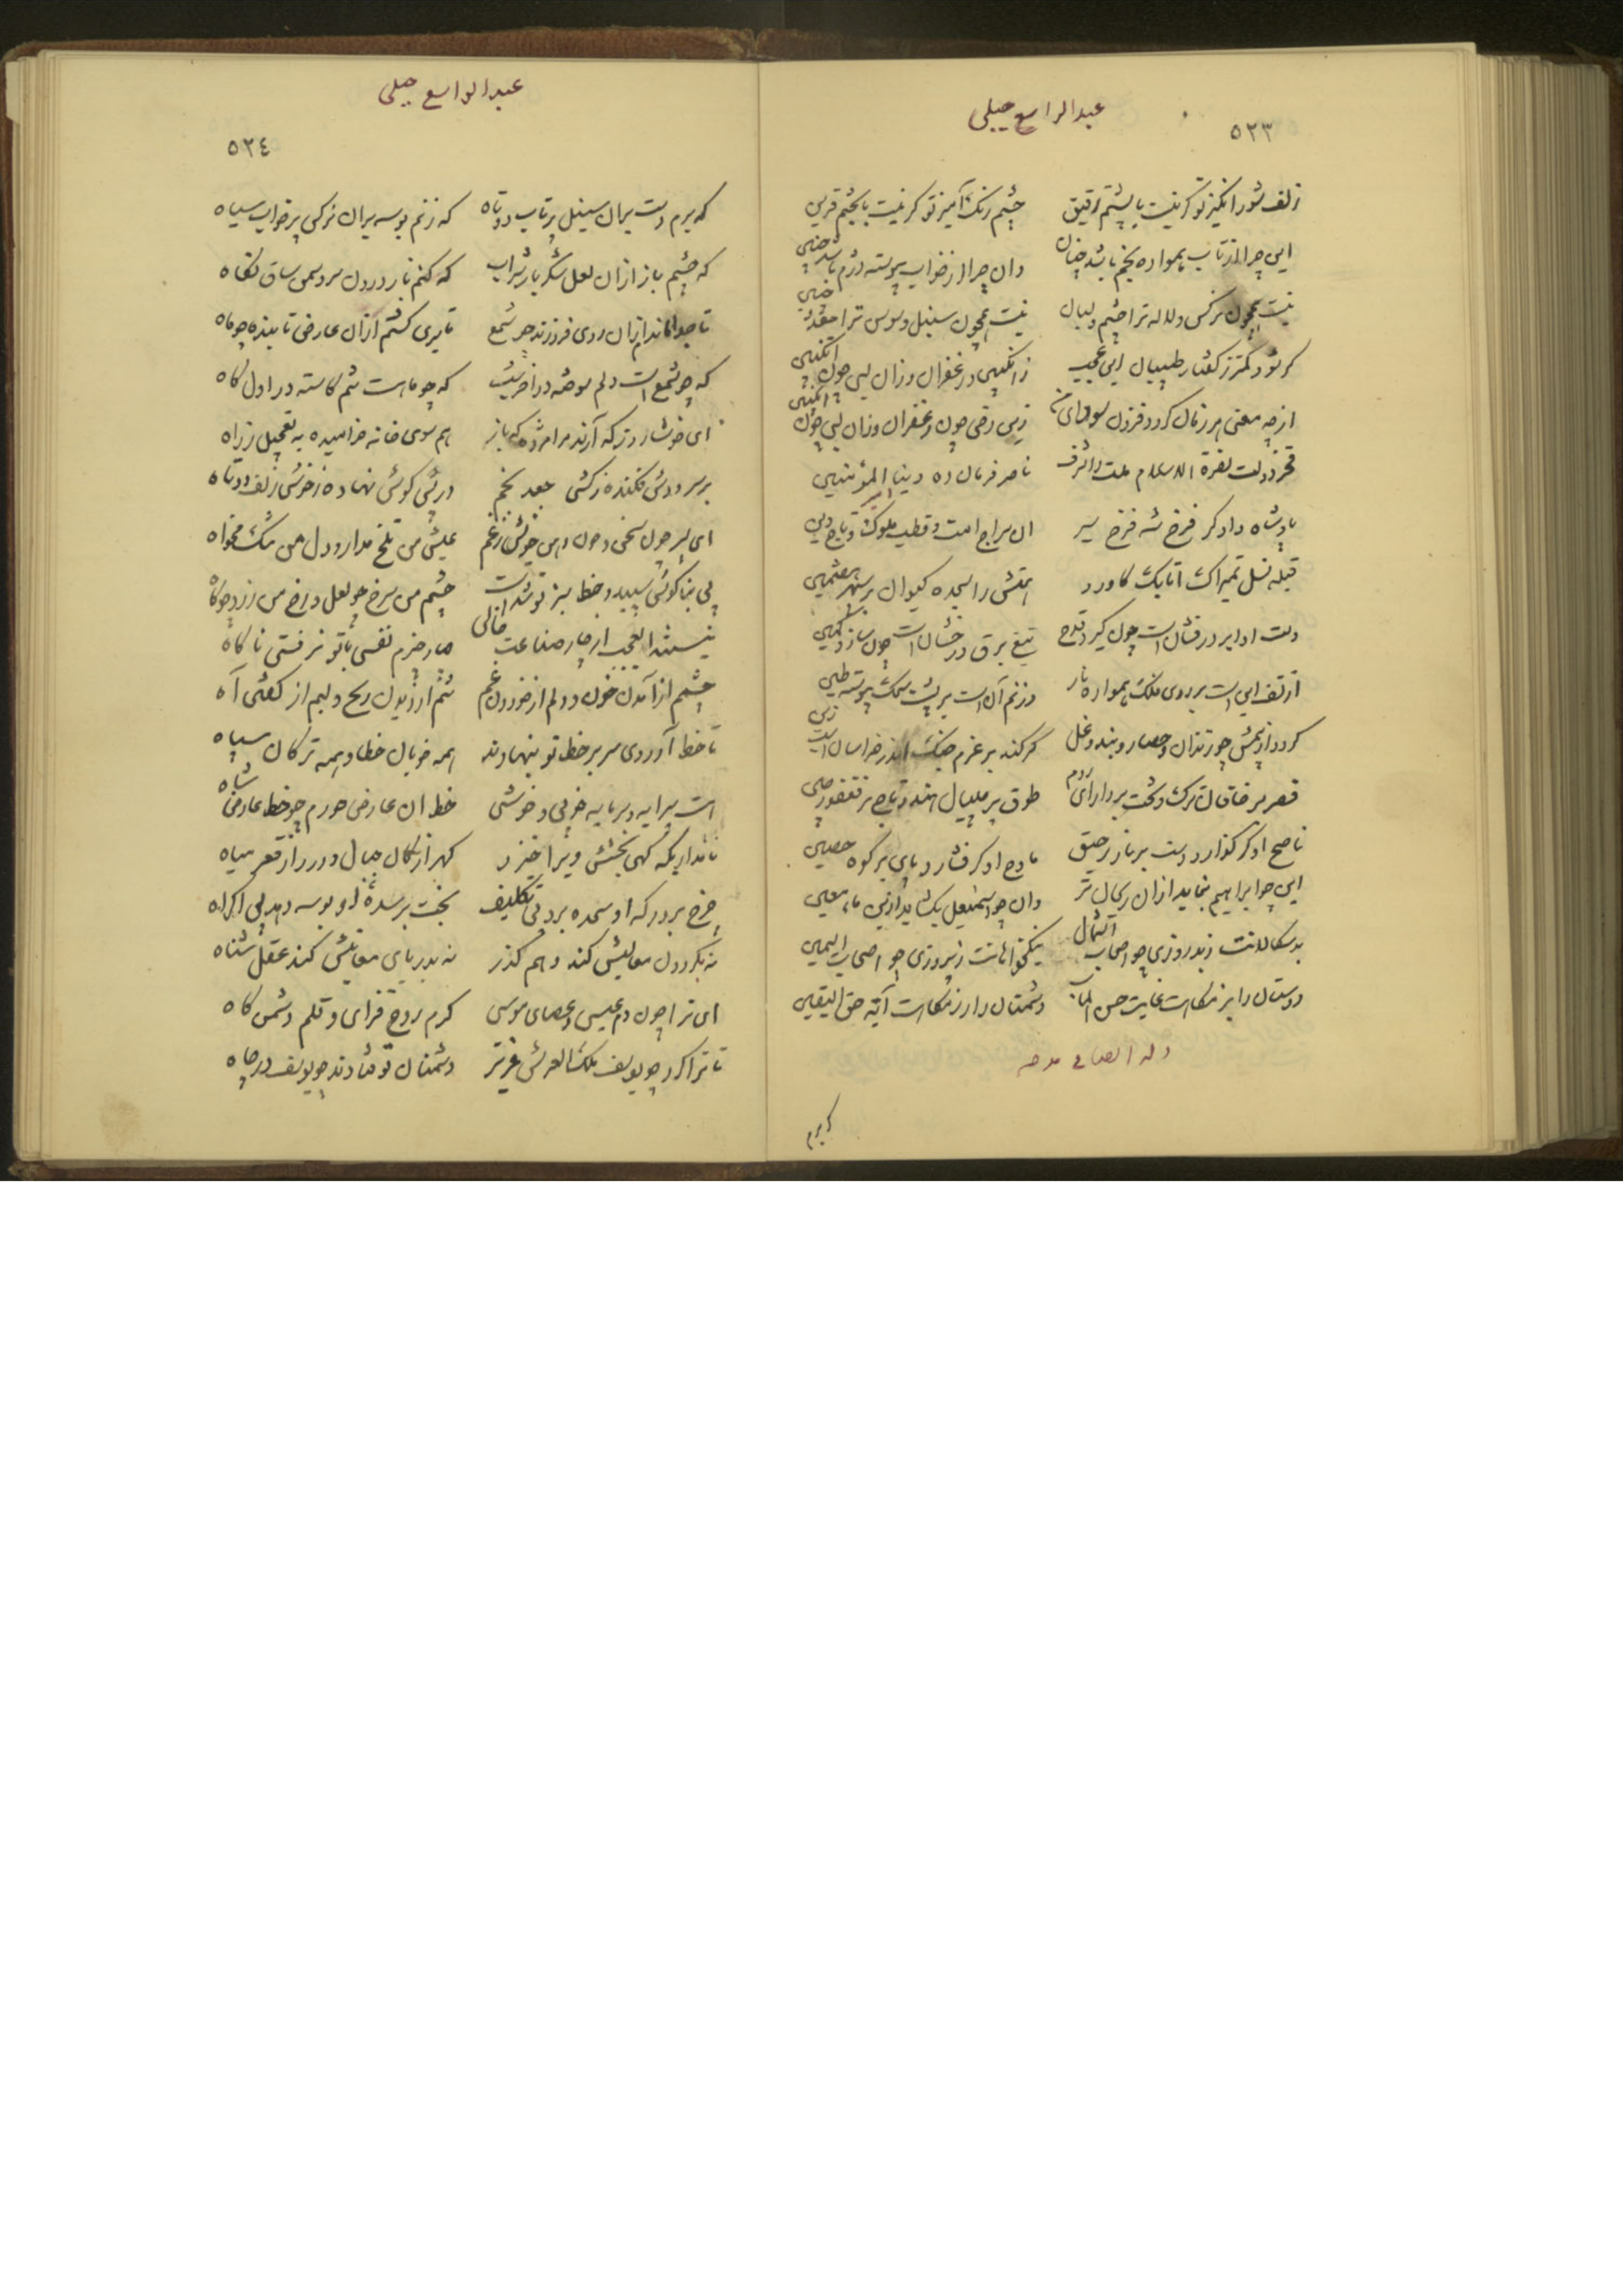 عبدالواسع جبلی
۵۲۳
زلف شورانگیز تو گر نیست با پشتم رفیق چشم رنگ آمیز تو گر نیست با بختم قرین
این چرا از تاب همواره بخم باشد چنان وان چرا از خواب پیوسته دژم باشد چنین
نیست همچون نرگس و لاله ترا چشم و لبان نیست همچون سنبل و سوسن ترا جعد و جبین
گر شود کمتر ز گفتار طبیبان ای عجب ز انگبین و زعفران وزان لبی چون انگبین
از چه معنی هر زمان گردد فزون سودای من زین رخی چون زعفران وزان لبی چون انگبین
فخر دولت نصرة الاسلام ملت را شرف ناصر فرمان ده دنیا امیرالمؤمنین
پادشاه دادگر فرخ شه فرخ سیر آن سراج امت و قطب ملوک و تاج دین
قبله نسل تمیراک اتابک کاورد همتش را سجده کیوان بر سپهر هفتمین
دست او ابر درفشان است چون گیرد قدح تیغ برق درخشان است چون سازد کمین
از تف این است بر روی فلک همواره نار وز نم آن است بر پشت سمک پیوسته طین
گردد از بیمش چو زندان و حصار و بند و غل گر کند بر عزم جنگ اندر خراسان اسب زین
قصر بر خاقان ترک و تخت بر دارای روم طوق بر مهیال هند و تاج بر فغفور چین
ناصح او گر گذارد دست بر نار حریق مادح او گر فشارد پای بر کوه حصین
این چو ابراهیم بنماید ازان ریحان تر وان چو اسمعیل بگشاید ازین ماء معین
بدسگالانت ز بدروزی چو اصحاب الشمال نیکخواهانت ز پیروزی چو اصحاب الیمین
دوستان را بزمگاهت غایت حسن المآب دشمنان را رزمگاهت آیة حق الیقین
وله ایضا فی مدحه
که برم
عبدالواسع جبلی
۵۲٤
که برم دست بران سنبل پرتاب دوتاه که زنم بوسه بران نرگس پرخواب سیاه
که چشیم باز ازان لعل شکربار شراب که کنم باز در و دل سرو سمن ساق نگاه
تا جدا مانده‌ام ازان روی فروزنده چو شمع تا بری گشتم ازان عارض تابنده چو ماه
که چو شمع است دلم سوخته در آخر شب که چو ماه است تنم کاسته در اول ماه
ای خوشا روز که آرند مرا مژده که باز هم سوی خانه خرامیده به تعجیل ز راه
بر سر دوش فکنده ز کشی جعد بخم در پس گوش نهاده ز خوشی زلف دوتاه
ای پسر چون سخن و چون دهن خویش ز غم عیش من تلخ مدار و دل من تنگ مخواه
بی بناگوش سپید و خط سبز تو شدست چشم من سرخ چو لعل و رخ من زرد چو کاه
نیستند ای عجب از چار صفت خالی چار چیزم نفسی با تو نرفتی ناگاه
چشمم از آمدن خون و دلم از خوردن غم تنم از دیدن رنج و لبم از گفتن آه
تا خط آوردی سر بر خط تو بنهادند همه خوبان خطا و همه ترکان سپاه
هست پیرایه و سرمایه خوبی و خوشی خط آن عارض خورم چو خط عارض شاه
نامداریکه گهی بخشش ویرا خیزد گهر از کان جبال و درر از قعر میاه
چرخ بر درگه او سجده برد بی تکلیف بخت بر سده او بوسه دهد بی اکراه
نه بگردون معالیش کند وهم گذر نه بدریای معانیش کند عقل شناه
ای ترا چون دم عیسی و عصای موسی کرم روح فزای و قلم دشمن کاه
تا ترا کرد چو یوسف ملک العرش عزیز دشمنان تو فتادند چو یوسف در چاه